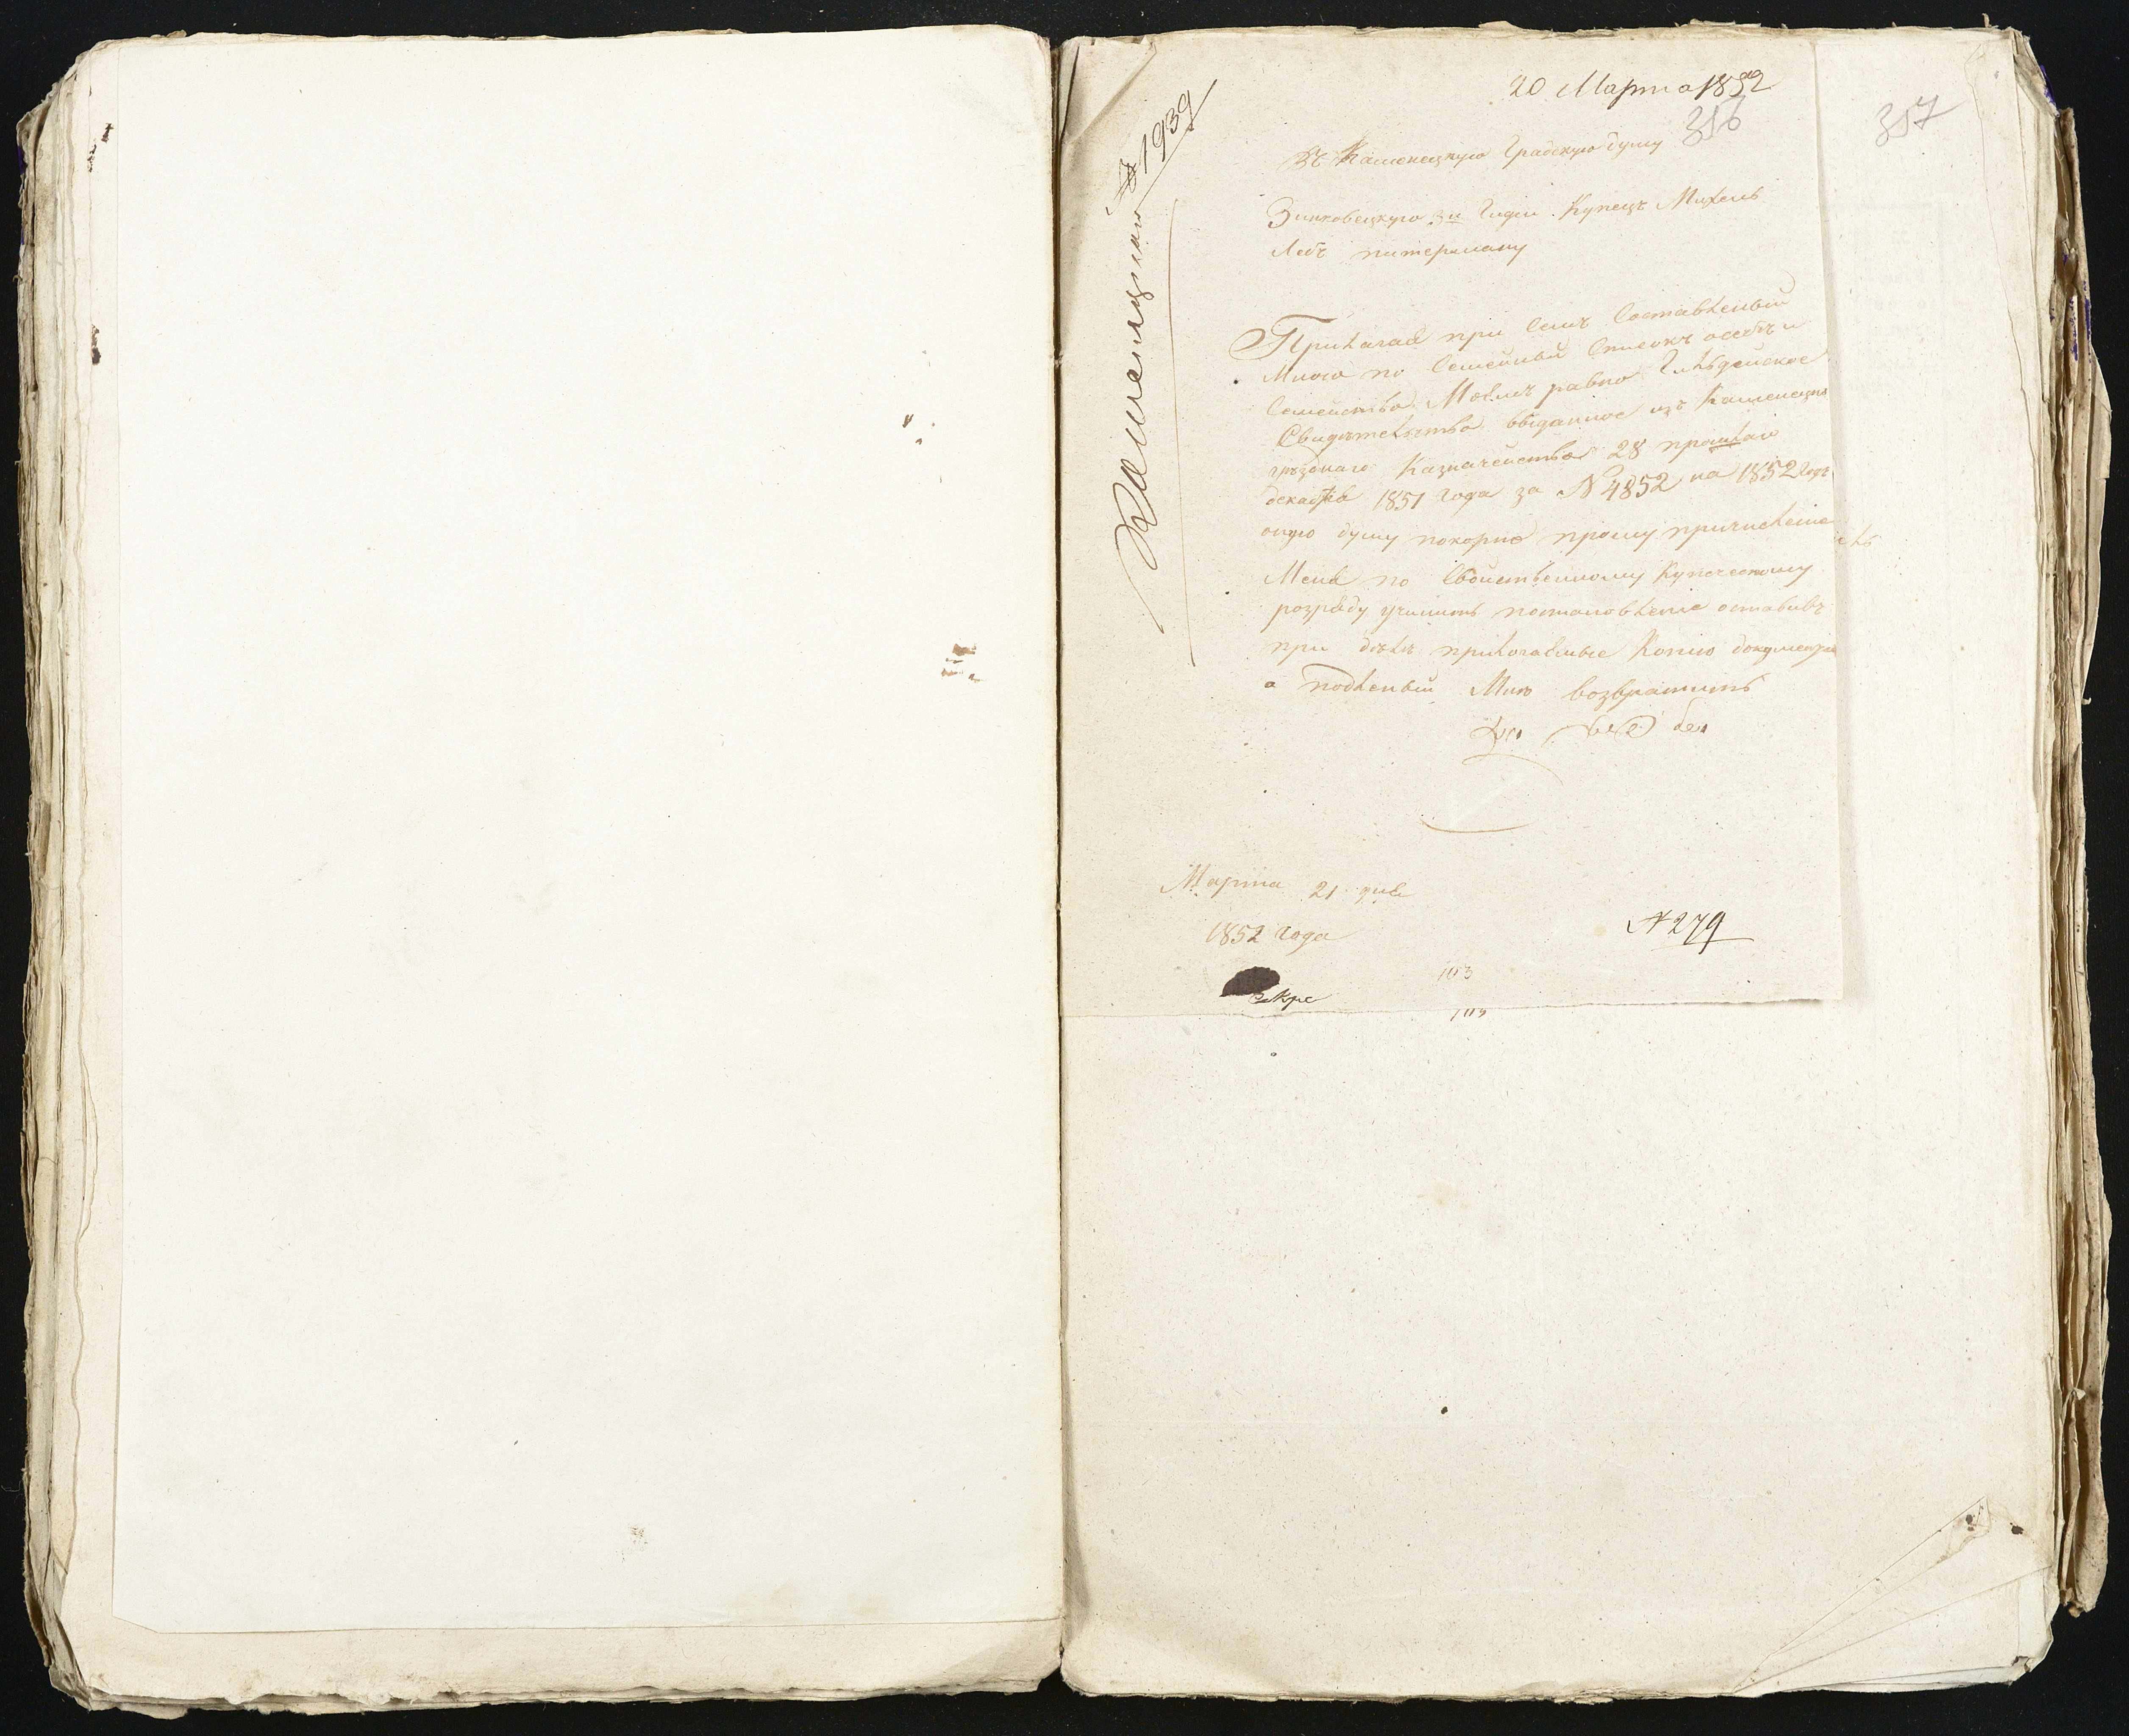 20 Марта 1852
316
317
№ 1939
Въ Каменецкую Градскую думу
Зинковецкого 3й Гилди Купецъ Михель
Лебъ питерману
Прилагая при Семъ Составленый
Мною по Семейный Списокъ особъ и
Семейства Моемъ равно Гильдейское
Свидетельство выданное изъ Каменецка
уезднаго Казначейства 28 прошлаго
декабря 1851 Года за № 4852 на 1852 Годъ
оную думу покорно прошу причислении
Меня по Свойственному Купеческому
розряду учинить постановление оставивъ
при деле прилогаемые Копию документа
а подленый Мне возвратить
Марта 21 дня
1852 Года
№ 279
103
103